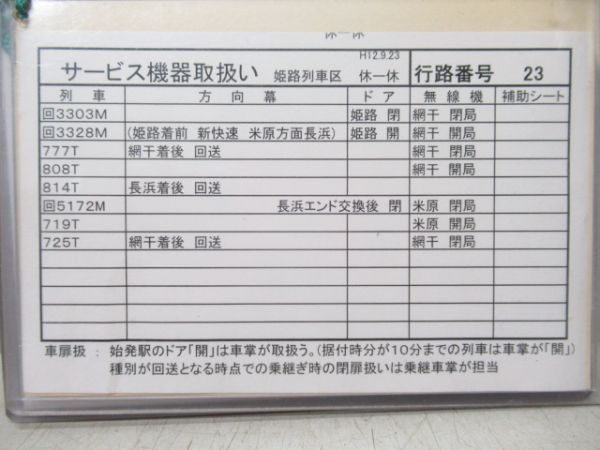 休ー休
H12.9.23
サービス機器取扱い 姫路列車区 休ー休 行路番号 23
列車 方向幕 ドア 無線機 補助シート
回3303M 姫路 閉 網干 閉局
回3328M (姫路着前 新快速 米原方面長浜) 姫路 開 網干 開局
777T 網干着後 回送 網干 閉局
808T 網干 開局
814T 長浜着後 回送
回5172M 長浜エンド交換後 閉 米原 閉局
719T 米原 開局
725T 網干着後 回送 網干 閉局
車扉扱 : 始発駅のドア「開」は車掌が取扱う。(据付時分が10分までの列車は車掌が「開」)
種別が回送となる時点での乗継ぎ時の閉扉扱いは乗継車掌が担当